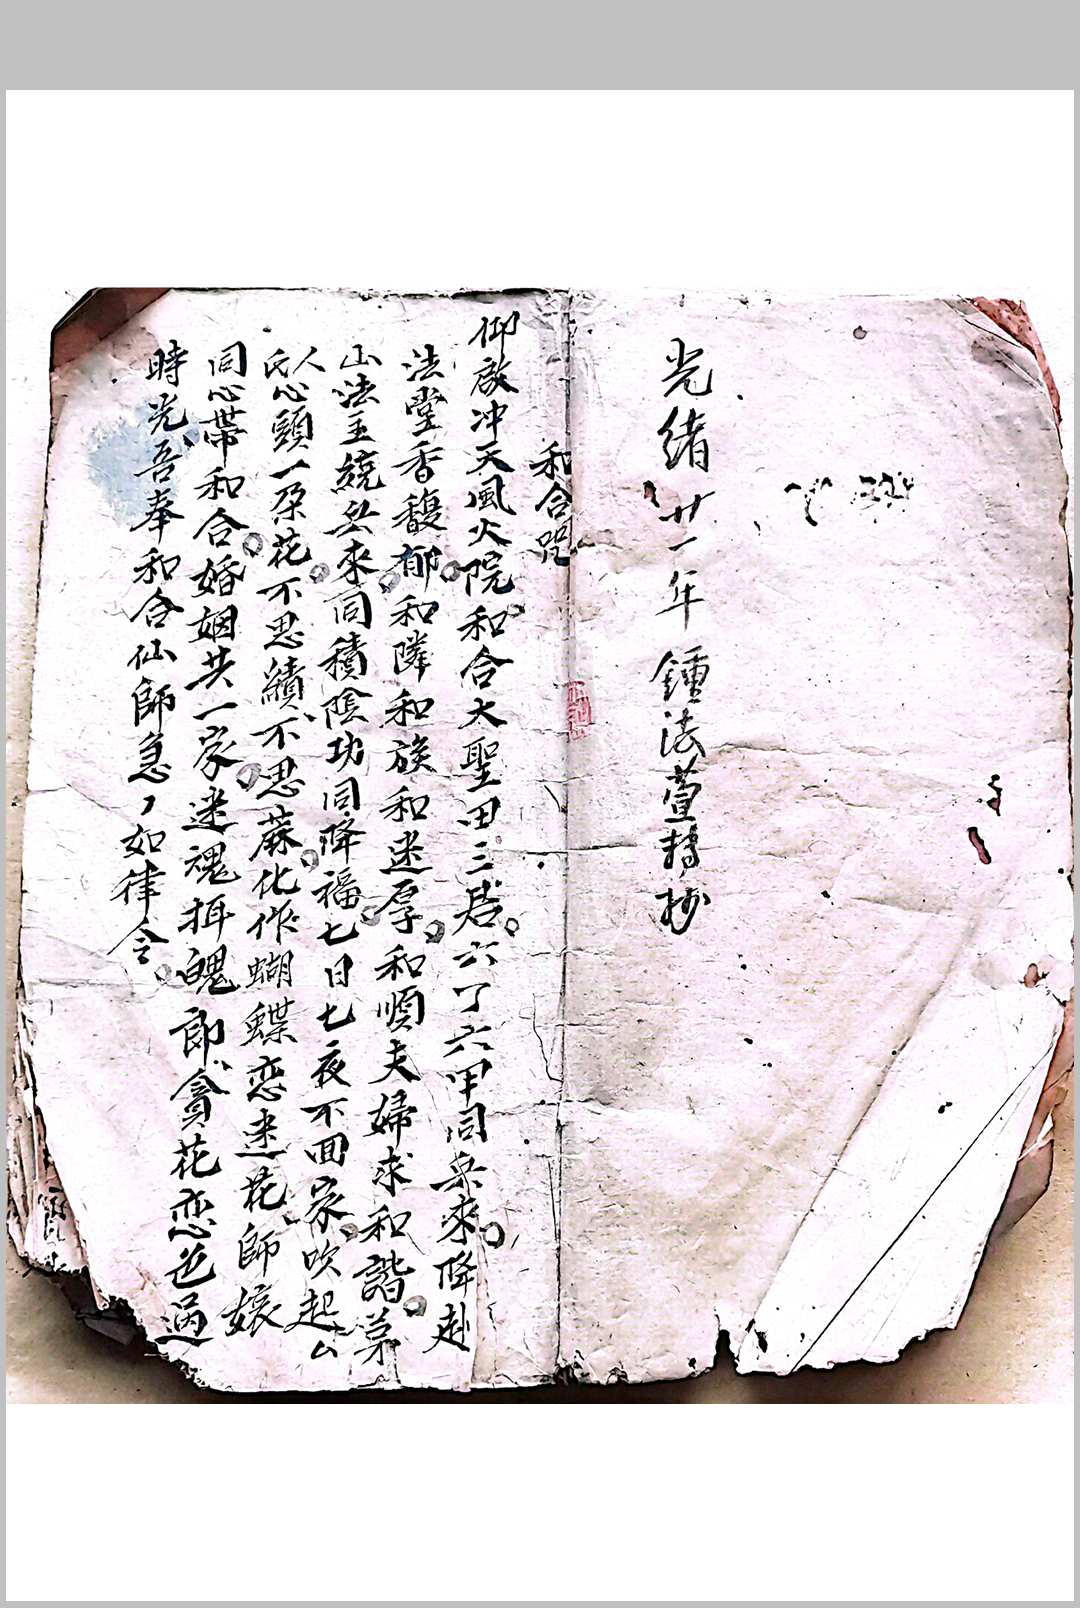 光緒廿一年鍾法萱轉抄
和合咒
仰啟冲天風火院和合大聖田三居六丁六甲同兵來降赴
法堂香馥郁和隣和族和迷厚和順夫婦求和諧茅
山法主統兵來同積陰功同降福七日七夜不回家吹起厶
人氏心頭一朶花不思績不思蔴化作蝴蝶恋迷花師娘
同心帶和合婚姻共一家迷魂押魄郎貪花恋色過
時光吾奉和合仙師急丶如律令